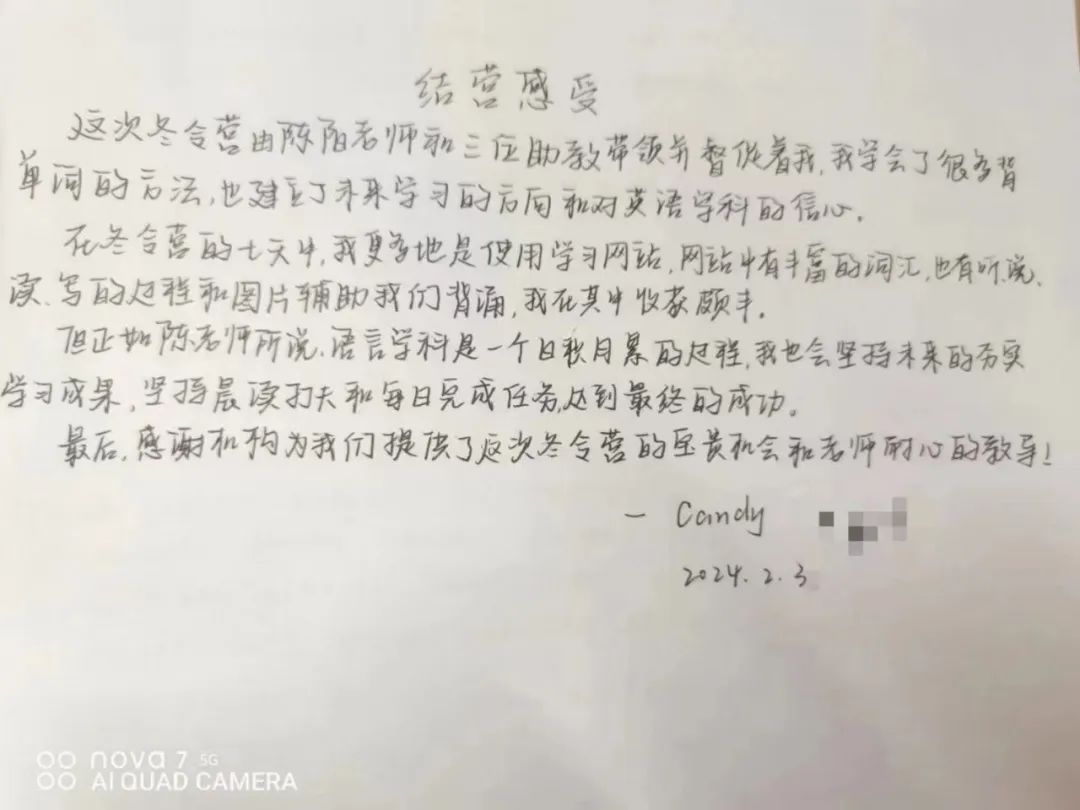 结营感受
这次冬令营由陈阳老师和三位助教带领并督促着我,我学会了很多背
单词的方法,也建立了未来学习的方向和对英语学科的信心。
在冬令营的七天中,我更多地是使用学习网站,网站中有丰富的词汇,也有听、说、
读、写的过程和图片辅助我们背诵,我在其中收获颇丰。
但正如陈老师所说,语言学科是一个日积月累的过程,我也会坚持未来的夯实
学习成果,坚持晨读打卡和每日完成任务,达到最终的成功。
最后,感谢机构为我们提供了这次冬令营的宝贵机会和老师耐心的教导!
— Candy
2024.2.3
nova 7 5G
AI QUAD CAMERA